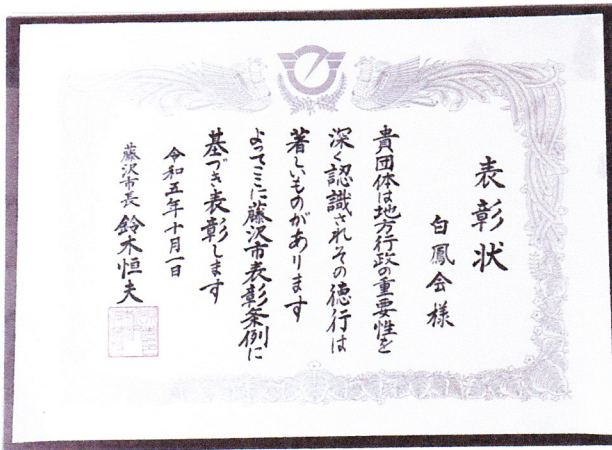 表彰状
白鳳会様
貴団体は地方行政の重要性を
深く認識されその徳行は
著しいものがあります
よってここに藤沢市表彰条例に
基づき表彰します
令和五年十月一日
藤沢市長 鈴木恒夫